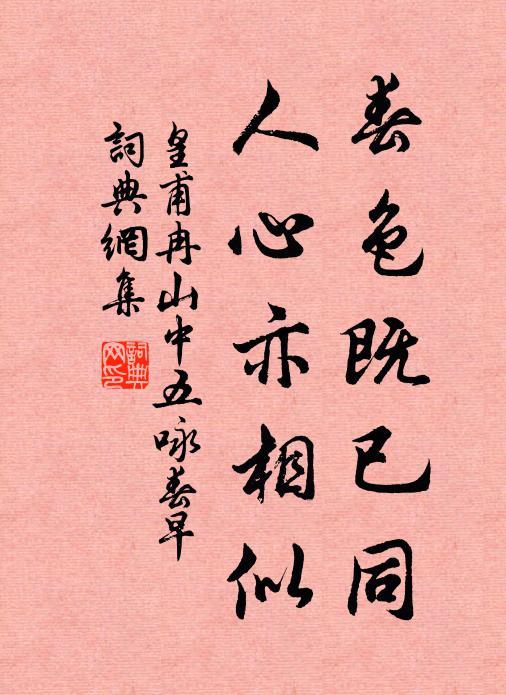 春色既已同
人心亦相似
皇甫冉山中五咏春早
詞典網集
詞典網印